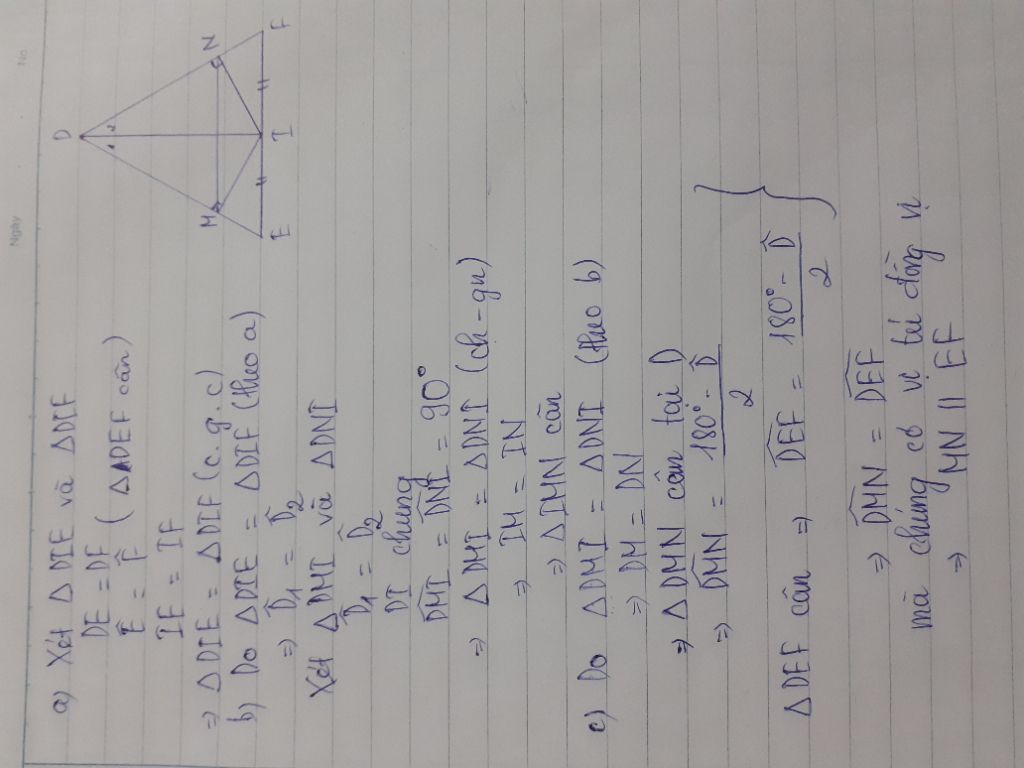 Ngày
No
D
1 2
M
N
E
I
F
a) Xét Δ DIE và ΔDIF
DE = DF
Ê = F̂ ( ΔDEF cân)
IE = IF
⇒ ΔDIE = ΔDIF (c.g.c)
b) Do ΔDIE = ΔDIF (theo a)
⇒ D̂1 = D̂2
Xét ΔDMI và ΔDNI
D̂1 = D̂2
DI chung
DMI = DNI = 90°
⇒ ΔDMI = ΔDNI (ch-gn)
⇒ IM = IN
⇒ ΔIMN cân
c) Do ΔDMI = ΔDNI (theo b)
⇒ DM = DN
⇒ ΔDMN cân tại D
⇒ DMN = (180° - D̂)/2
ΔDEF cân ⇒ DEF = (180° - D̂)/2 }
⇒ DMN = DEF
mà chúng có vị trí đồng vị
⇒ MN || EF